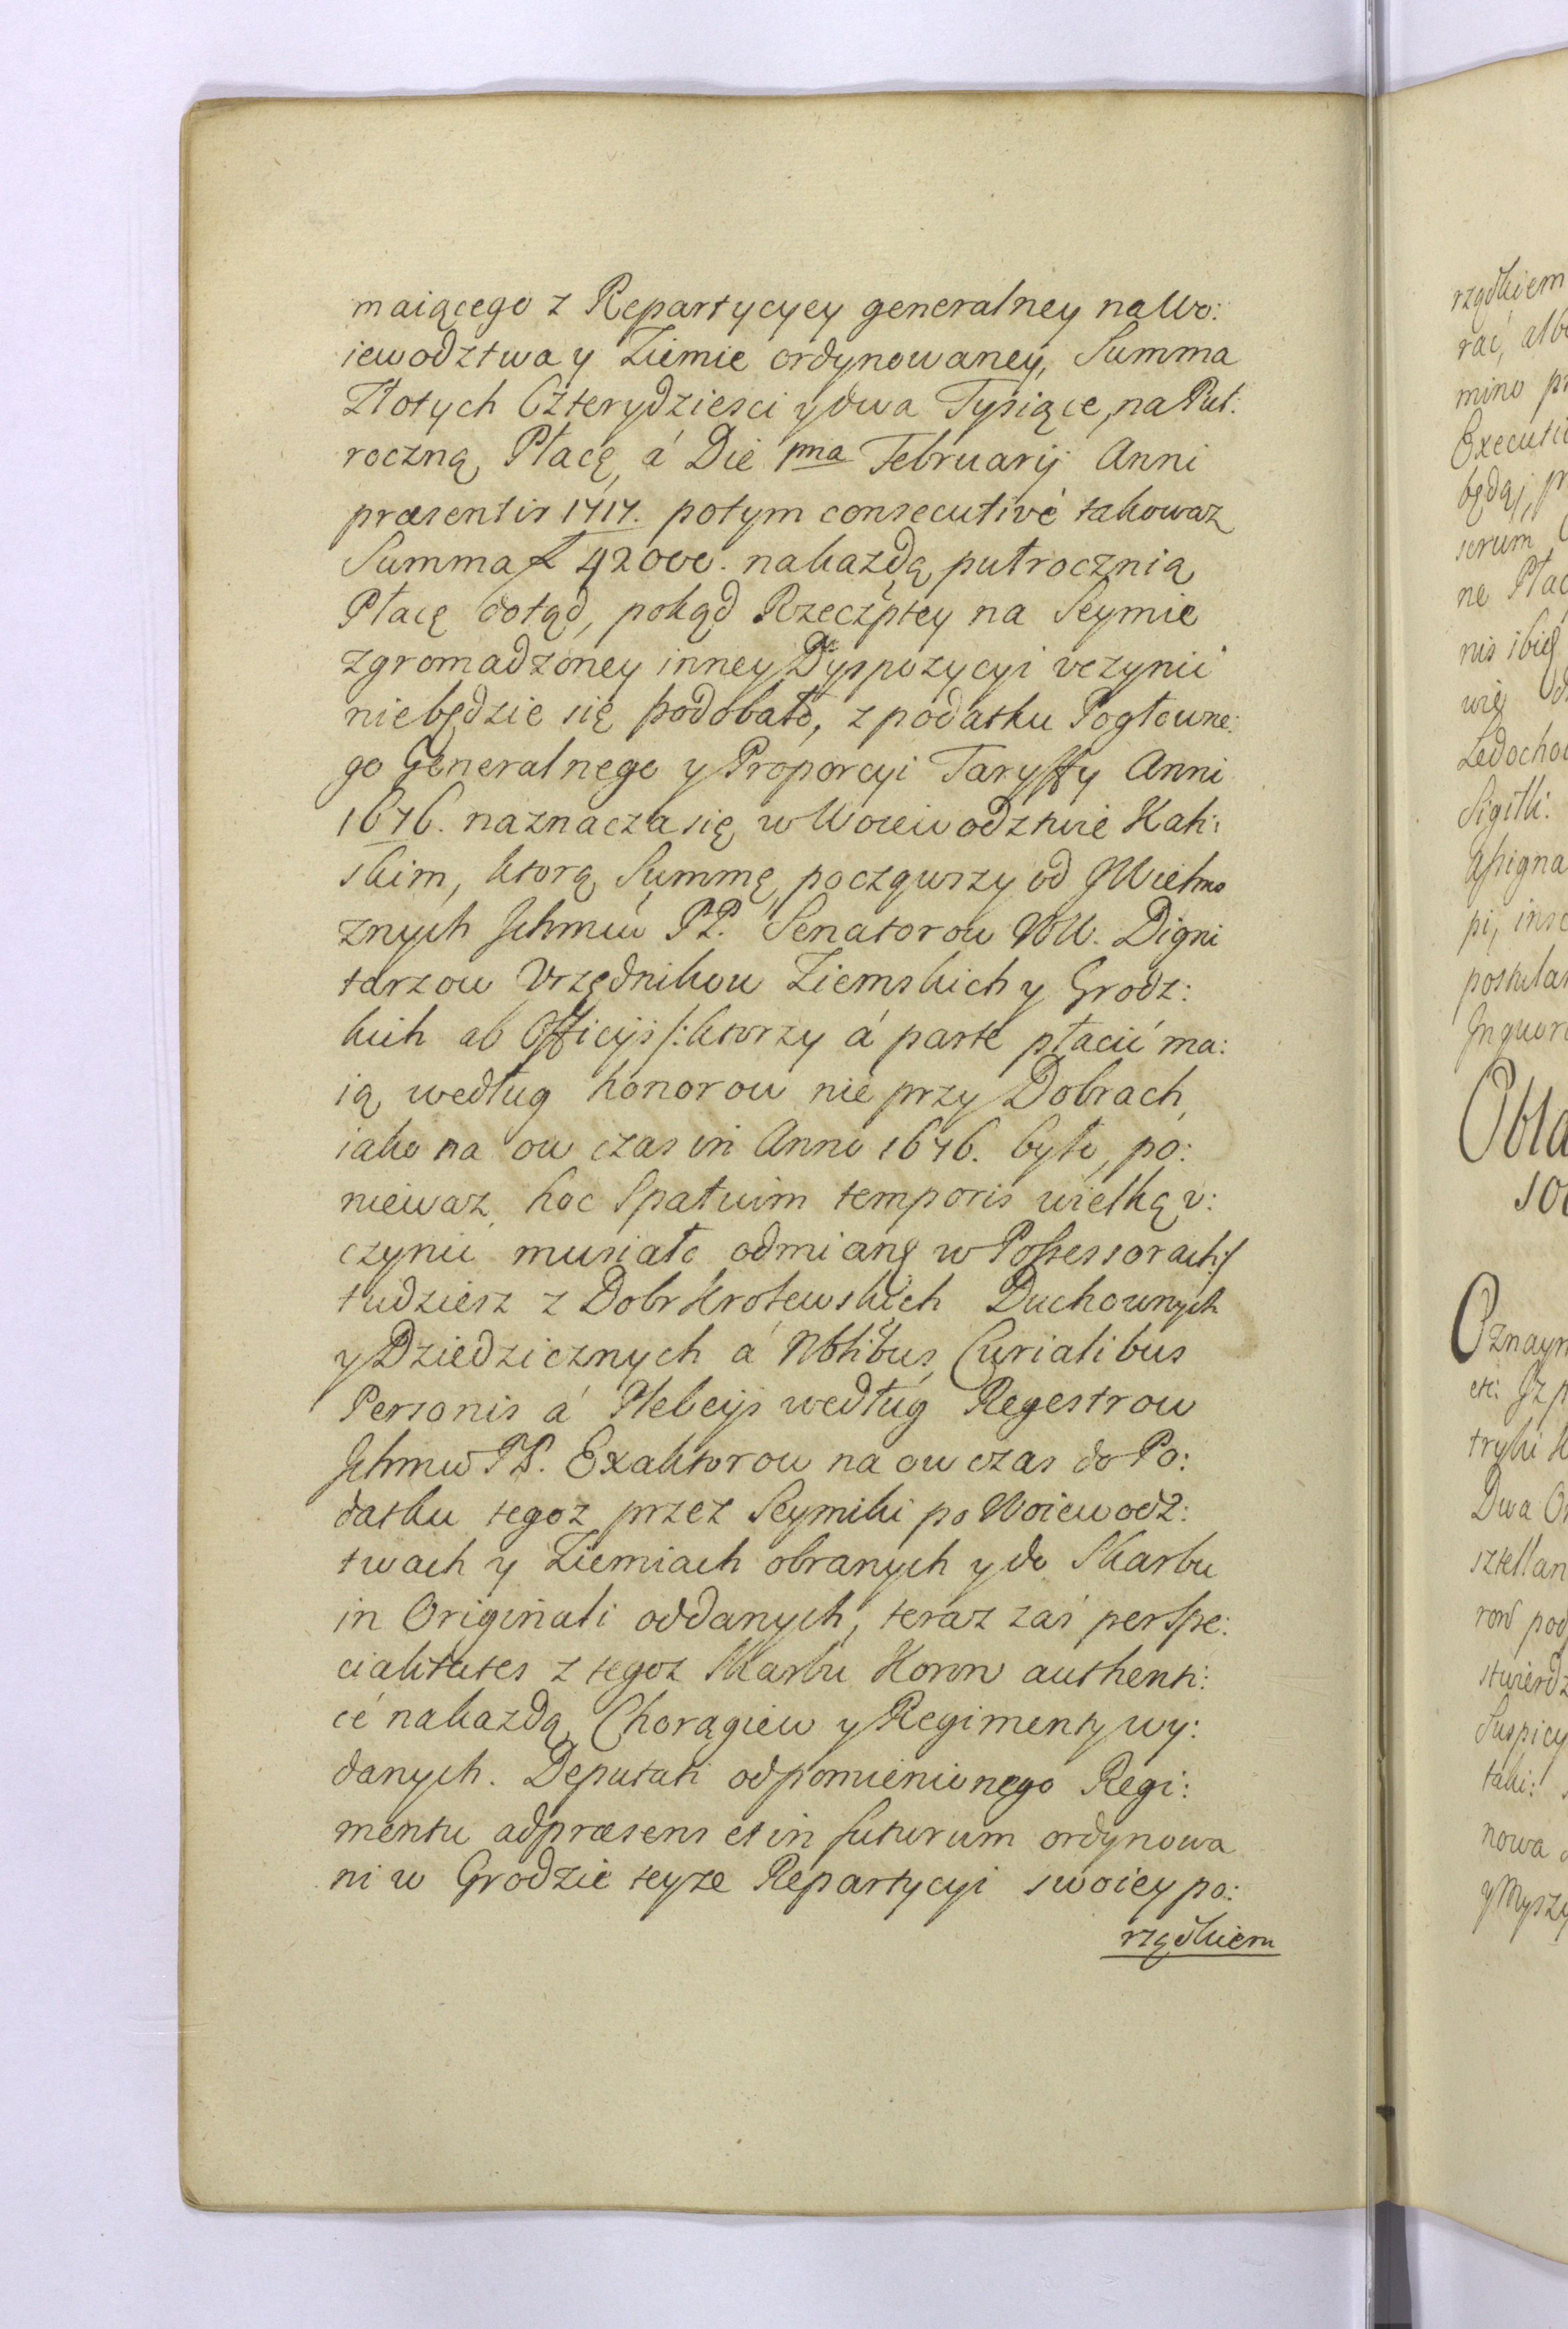 maiącego z Repartycyey generalney na Wo:
iewodztwa y Ziemie ordynowaney, Summa
Złotych Czterydziesci y dwa Tysiące, na Puł:
roczną Płacę, á Die 1ma Februarij Anni
præsentis 1717. potym consecutivé takowaz
Summa zł 42000. na kazdą pułrocznią
Płacę dotąd, pokąd Rzeczptey na Seymie
zgromadzoney inney Dyspozycyi vczynić
niebędzie się podobało, z podatku Pogłowne:
go Generalnego y Proporcyi Taryffy Anni
1676. naznacza się w Woiewodztwie Kali:
skim, ktorą Summę, począwszy od JWielmo
znych Jchmciw PP. Senatorow WW. Digni
tarzow Vrzędnikow Ziemskich y Grodz:
kich ab Officijs /: ktorzy á parte płacić ma:
ią według honorow nie przy Dobrach,
iako na ow czas in Anno 1676. było, po:
niewaz hoc Spatium temporis wielką v:
czynić musiało odmianę w Possessorach :/
tudziesz z Dobr Krolewskich Duchownych
y Dziedzicznych á Nobilibus, Curialibus
Personis á Plebeijs według Regestrow
Jchmciw PP. Exaktorow na ow czas do Po:
datku tegoz przez Seymiki po Woiewodz:
twach y Ziemiach obranych y do Skarbu
in Originali oddanych, teraz zaś per Spe:
cialitates z tegoz Skarbu Koron authenti:
cé na kazdą Chorągiew y Regimenty wy:
danych. Deputati od pomienionego Regi:
mentu ad præsens et in futurum ordynowa
ni w Grodzie teyze Repartycyi swoiey po:
rządkiem
rządkiem
rać, alb
mino pr
Executi
będą, pr
serum
ne Płac
nis ibid
wię
Ledocho
Sigilli:
Assigna
pi, inse
postula
In quor
Obla
Oznaym
etc: Jz p
tryki K
Dwa O
sztellan
row pod
stwierdz
Suspicy
taki:
nowa
y Myszy